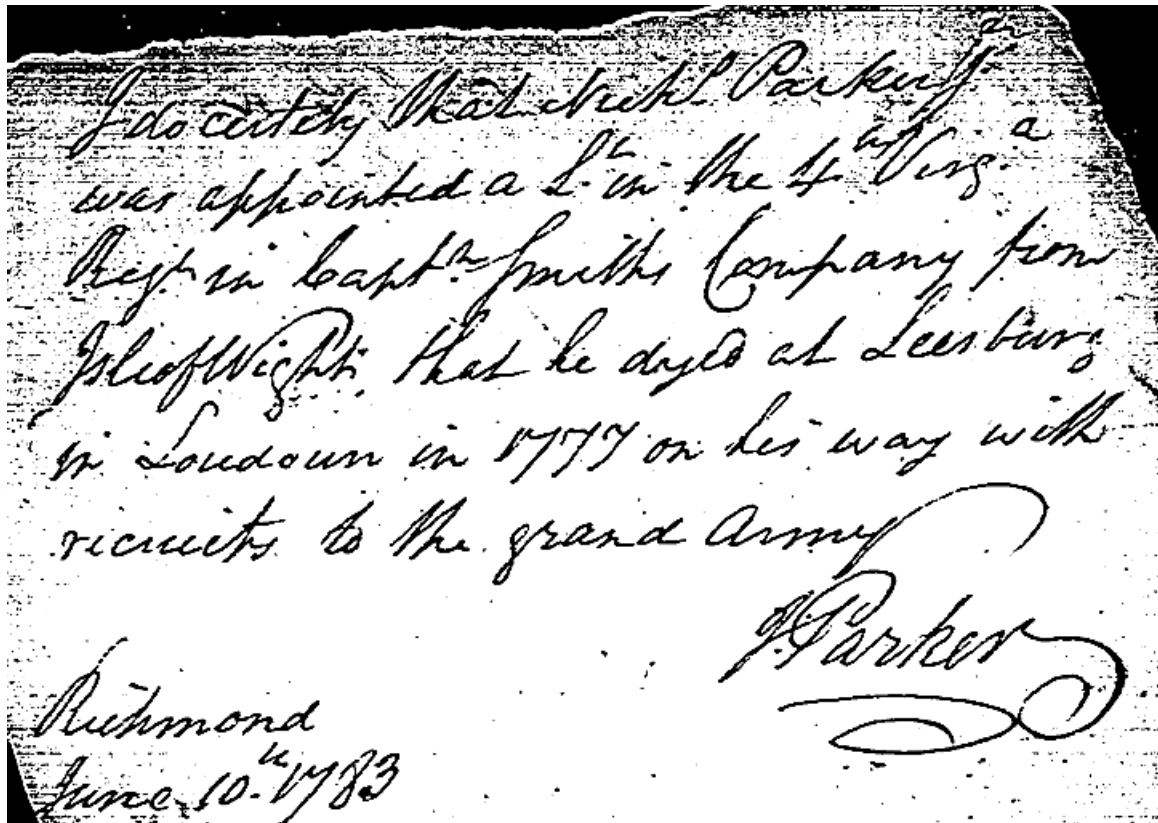 I do certefy that Nichs. Parker Jr.
was appointed a Lt. in the 4th Virga.
Regt. in Captn. Smiths Company from
Isle of Wight, that he dyed at Leesburg
in Loudoun in 1777 on his way with
recruits to the grand Army
J. Parker
Richmond
June 10th. 1783